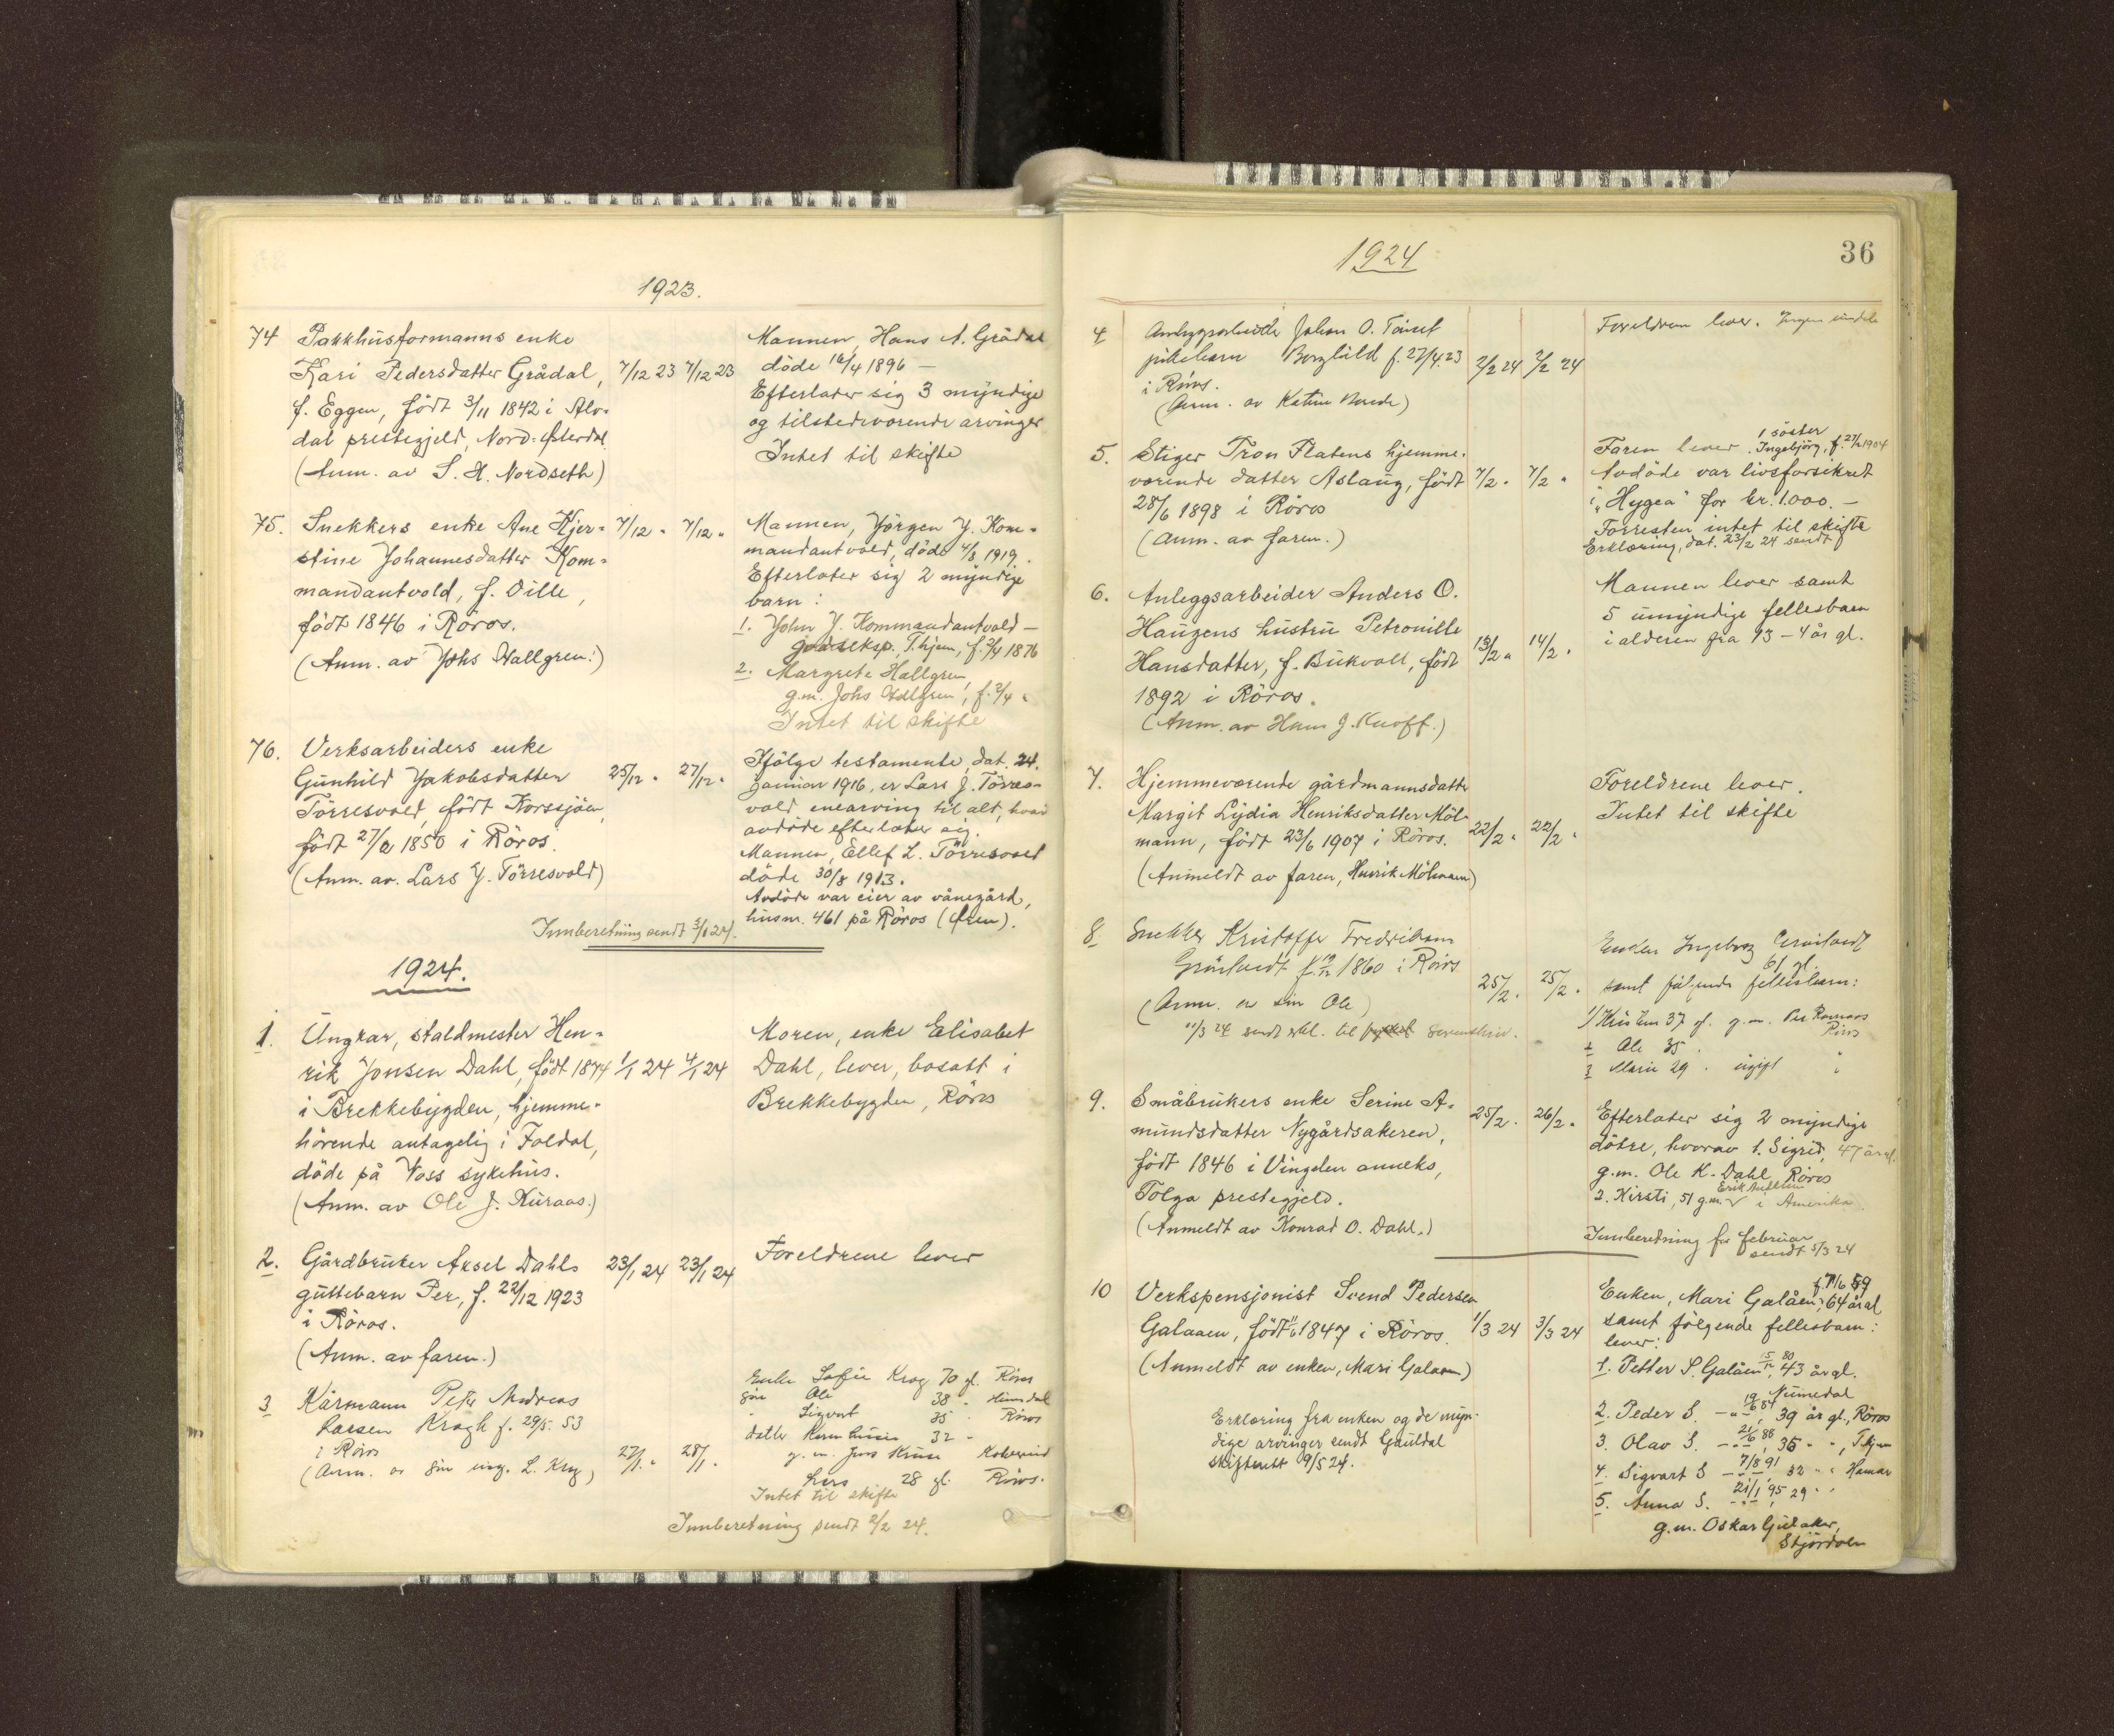 1923.
74 Pakkhusformanns enke
Kari Pedersdatter Grådal, 7/12 23 7/12 23
f. Eggen, født 3/11 1842 i Alv-
dal prestegjeld, Nord-Østerdal
(Anm. av S. H. Nordseth)
Mannen, Hans A. Grådal
døde 16/4 1896 —
Efterlater sig 3 myndige
og tilstedeværende arvinger
Intet til skifte
75. Snekkers enke Ane Kjer- 7/12 " 7/12 "
stine Johannesdatter Kom-
mandantvold, f. Dille,
født 1846 i Røros.
(Anm. av Johs Hallgren.)
Mannen, Jørgen J. Kom-
mandantvold, døde 4/8 1919.
Efterlater sig 2 myndige
barn:
1. John J. Kommandantvold —
godseksp., T.hjem, f. 1876
2. Margrete Hallgren
g.m. Johs Hallgren, f. 2/4 "
Intet til skifte
76. Verksarbeiders enke
Gunhild Jakobsdatter 25/12 " 27/12 "
Törresvold, født Korssjøen,
født 27/2 1850 i Røros.
(Anm. av. Lars J. Törresvold)
Ifølge testamente, dat. 24.
januar 1916, er Lars J. Törres-
vold enearving til alt, hvad
avdøde efterlater sig.
Mannen, Ellef L. Törresvold
døde 30/8 1913.
Avdøde var eier av vånegård,
husnr. 461 på Røros (Øren).
Innberetning sendt 3/1 24.
1924.
1. Ungkar, staldmester Hen-
rik Jonsen Dahl, født 1874 1/1 24 4/1 24
i Brekkebygden, hjemme-
hörende antagelig i Foldal,
döde på Voss sykehus.
(Anm. av Ole J. Kuraas.)
Moren, enke Elisabet
Dahl, lever, bosatt i
Brekkebygden, Røros
2. Gårdbruker Aksel Dahls 23/1 24 23/1 24
guttebarn Per, f. 22/12 1923
i Røros.
(Anm. av faren.)
Foreldrene lever
3 Kårmann Peter Andreas
Larsen Krogh f. 29/5. 53
i Røros 27/1 " 28/1 "
(Anm. av søn L. Krog)
Enke Sofie Krog 70 gl. Røros
søn Ole 38 "
" Sigvart 35 " Røros
datter 32 "
g. m. Jens
Lars 28 gl. Røros.
Intet til skifte
Innberetning sendt 2/2 24.
1924
36
4 Anleggsarbeider Johan O. Tönset
pikebarn Borghild f. 27/4.23 2/2 24 2/2 24
i Røros.
(Anm. av)
Foreldrene lever.
5. Stiger Tron Flatens hjemme-
værende datter Aslaug, født 7/2 " 7/2 "
28/6 1898 i Røros
(Anm. av faren.)
Faren lever. 1 söster
Ingebjörg, f. 27/2 1904
Avdøde var livsforsikret
i "Hygea" for kr. 1.000. —
Forresten intet til skifte
Erklæring, dat. 23/2 24 sendt
6. Anleggsarbeider Anders O.
Haugens hustru Petronille
Hansdatter, f. Bukvoll, født 13/2 " 14/2 "
1892 i Røros.
(Anm. av Hans J. Knoff.)
Mannen lever samt
5 umyndige fellesbarn
i alderen fra 13 – 4 år gl.
7. Hjemmeværende gårdmannsdatter
Margit Lydia Henriksdatter Möl-
mann, født 23/6 1907 i Røros. 22/2 " 22/2 "
(Anmeldt av faren, Henrik Mölmann)
Foreldrene lever.
Intet til skifte
8. Snekker Kristoffer Fredriksen
Grönlandt f. 19/12 1860 i Røros 25/2 " 25/2 "
(Anm. av søn Ole)
11/3 24 sendt erkl. til sorenskriv.
Enken Ingeborg
61 gl.
samt følgende fellesbarn:
1) 37 gl. g.m. Per Røros
2 Ole 35 "
3 Marie 29 " ugift "
9. Småbrukers enke Serine A- 25/2 " 26/2 "
mundsdatter Nygårdsakeren,
født 1846 i Vingelen anneks,
Tolga prestegjeld.
(Anmeldt av Konrad O. Dahl.)
Efterlater sig 2 myndige
døtre, hvorav 1. Sigrid, 47 år gl.
g.m. Ole K. Dahl, Røros
2. Kirsti, 51 g.m. Erik i Amerika
Innberetning for februar
sendt 5/3 24
10 Verkspensjonist Svend Pedersen
Galaaen, født 1847 i Røros. 1/3 24 3/3 24
(Anmeldt av enken, Mari Galaaen)
Erklæring fra enken og de myn-
dige arvinger sendt Gauldal
skifterett 9/5 24.
Enken, Mari Galåen, 64 år gl
samt følgende fellesbarn:
lever:
1. Petter S. Galåen 80, 43 år gl.
Numedal
2. Peder S. —"— 84, 39 år gl., Røros
3. Olav S. —"— 88, 35 " ", T.hjem
4. Sigvart S —"— 7/8 91, 32 " " Hamar
5. Anna S. —"— 21/1 95, 29 " "
g.m. Oskar Gjelaker,
Stjørdalen